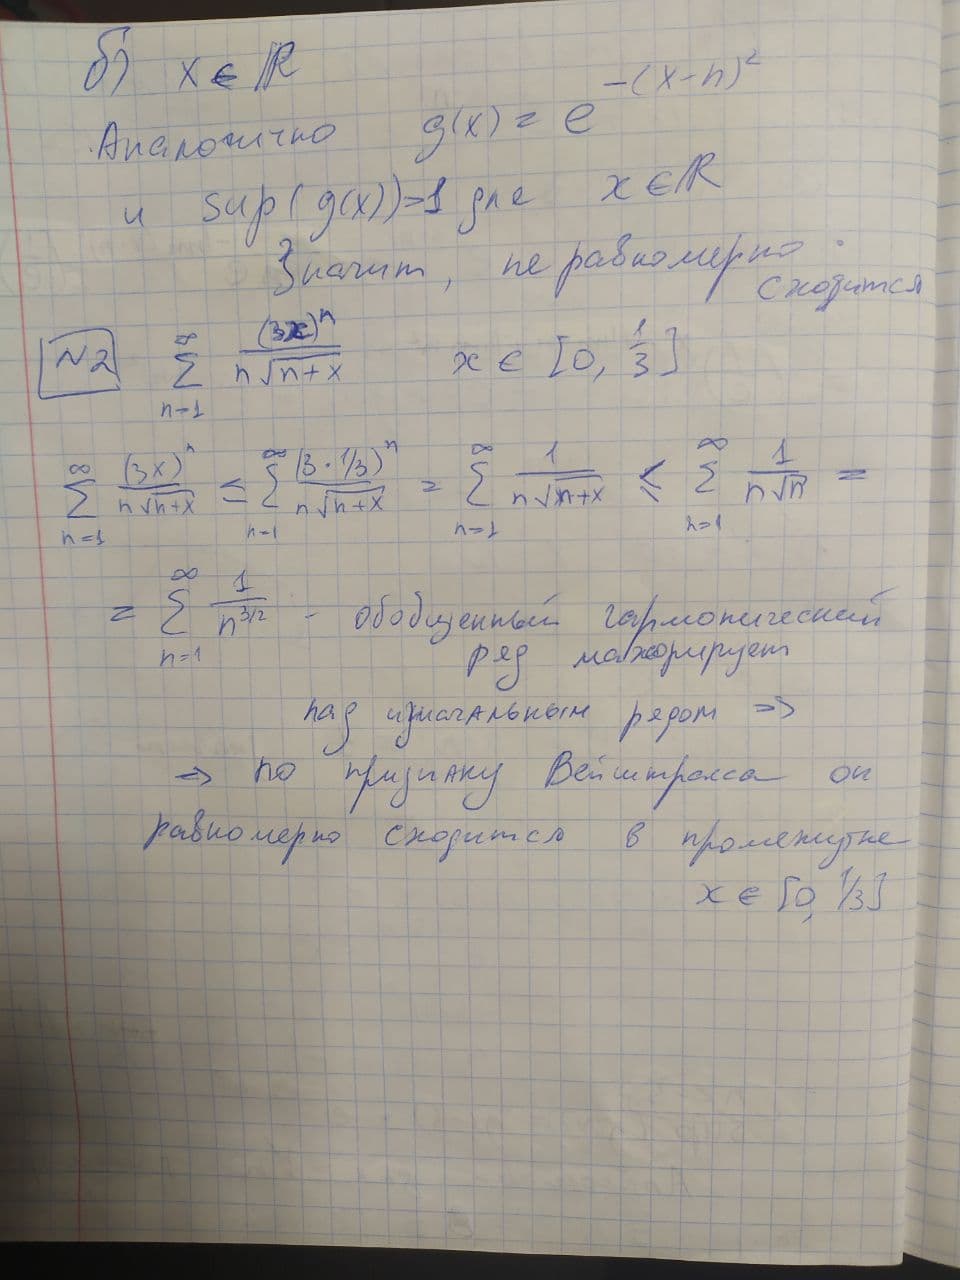 б) x ∈ ℝ
Аналогично g(x) = e^{-(x-n)^2}
и sup(g(x))=1 для x ∈ ℝ
Значит, не равномерно
сходится
№2 ∑_{n=1}^{∞} (3x)^n / (n√(n+x)) x ∈ [0, 1/3]
∑_{n=1}^{∞} (3x)^n / (n√(n+x)) ≤ ∑_{n=1}^{∞} (3·1/3)^n / (n√(n+x)) = ∑_{n=1}^{∞} 1 / (n√(n+x)) ≤ ∑_{n=1}^{∞} 1 / (n√n) =
= ∑_{n=1}^{∞} 1 / n^{3/2} - обобщенный гармонический
ряд мажорирует
над изначальным рядом ⇒
⇒ по признаку Вейштрасса он
равномерно сходится в промежутке
x ∈ [0, 1/3]